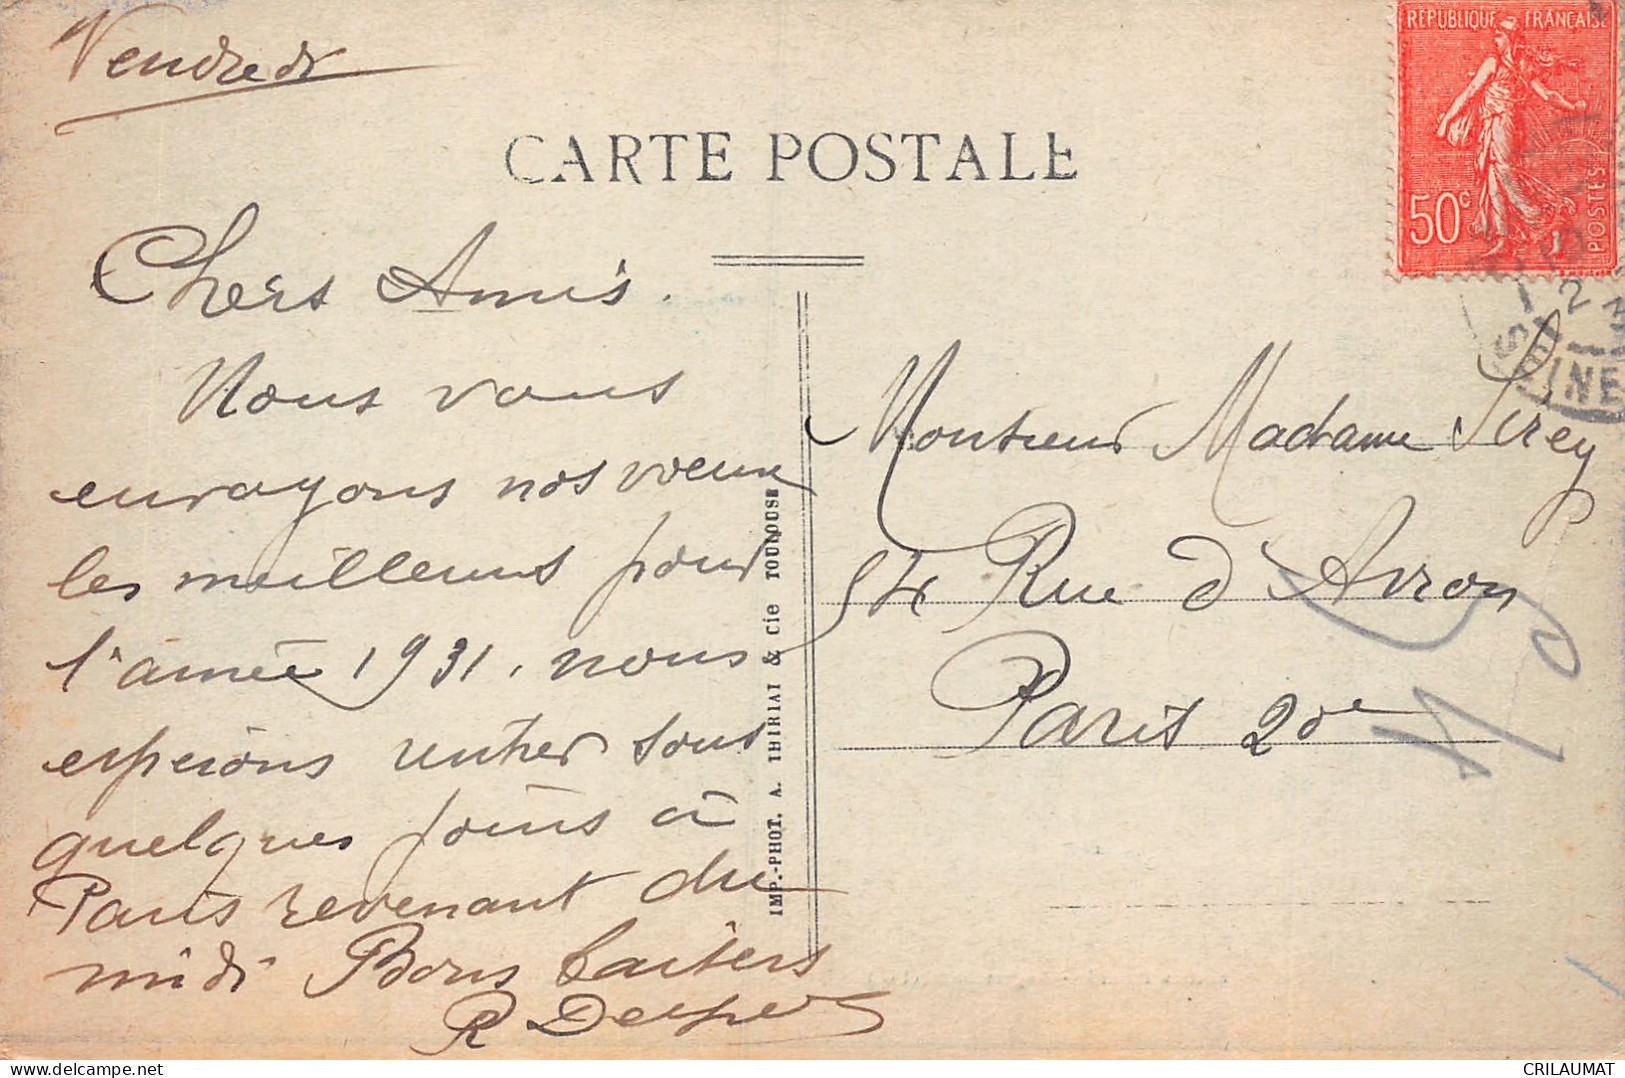 Vendredi
CARTE POSTALE
REPUBLIQUE FRANÇAISE
50c
POSTES
SEINE
Chers Amis.
Nous vous
envoyons nos voeux
les meilleurs pour
l'année 1931. nous
esperons rentrer sous
quelques jours à
Paris revenant du
midi Bons baisers
R
Monsieur Madame Sirey
54 Rue d'Avron
Paris 20e
IMP.-PHOT. A. THIRIAT & Cie TOULOUSE
https://www.delcampe.net
CRILAUMAT